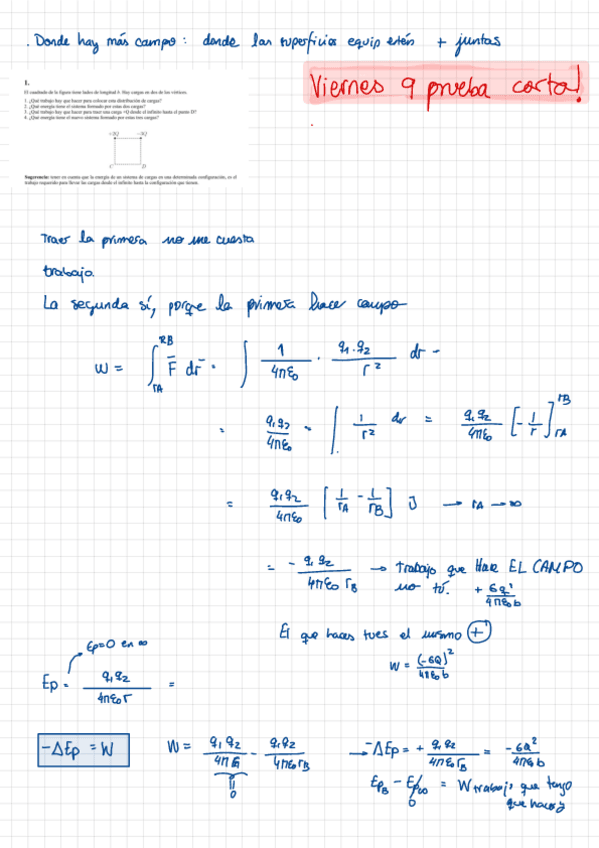 . Donde hay más campo: donde las superficies equip estén + juntas
Viernes 9 prueba corta!
1.
El cuadrado de la figura tiene lados de longitud b. Hay cargas en dos de los vértices.
1. ¿Qué trabajo hay que hacer para colocar esta distribución de cargas?
2. ¿Qué energía tiene el sistema formado por estas dos cargas?
3. ¿Qué trabajo hay que hacer para traer una carga +Q desde el infinito hasta el punto D?
4. ¿Qué energía tiene el nuevo sistema formado por estas tres cargas?
C D
Sugerencia: tener en cuenta que la energía de un sistema de cargas en una determinada configuración, es el
trabajo requerido para llevar las cargas desde el infinito hasta la configuración que tienen.
Traer la primera no me cuesta
trabajo.
La segunda sí, porque la primera hace campo
W = ∫_{rA}^{RB} F̄ dr̄ · ∫ 1/4πε0 · q1·q2/r² dr -
= q1q2/4πε0 · ∫ 1/r² dr = q1q2/4πε0 [-1/r]_{rA}^{rB}
= q1q2/4πε0 [1/rA - 1/rB] J → rA → ∞
= - q1q2/4πε0 rB → Trabajo que Hace EL CAMPO
no tú. + 6q²/4πε0b
El que haces tues el mismo +
W = (-6Q)²/4πε0b
Ep=0 en ∞
Ep = q1q2/4πε0r =
-ΔEp = W
W = q1q2/4πr - q1q2/4πε0rB → -ΔEp = + q1q2/4πε0rB = -6Q²/4πε0b
0
EpB - Ep∞ = W trabajo que tengo
0
que hacer